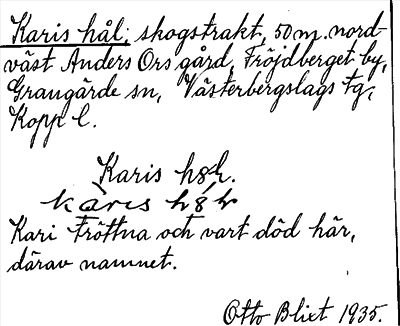 Karis hål; skogstrakt, 50 m. nord-
väst Anders Ors gård, Fröjdberget by,
Grangärde sn, Västerbergslags tg,
Kopp l.
Karis h8l.
karis h8
Kari Fröttna och vart död här,
därav namnet.
Otto Blixt 1935.